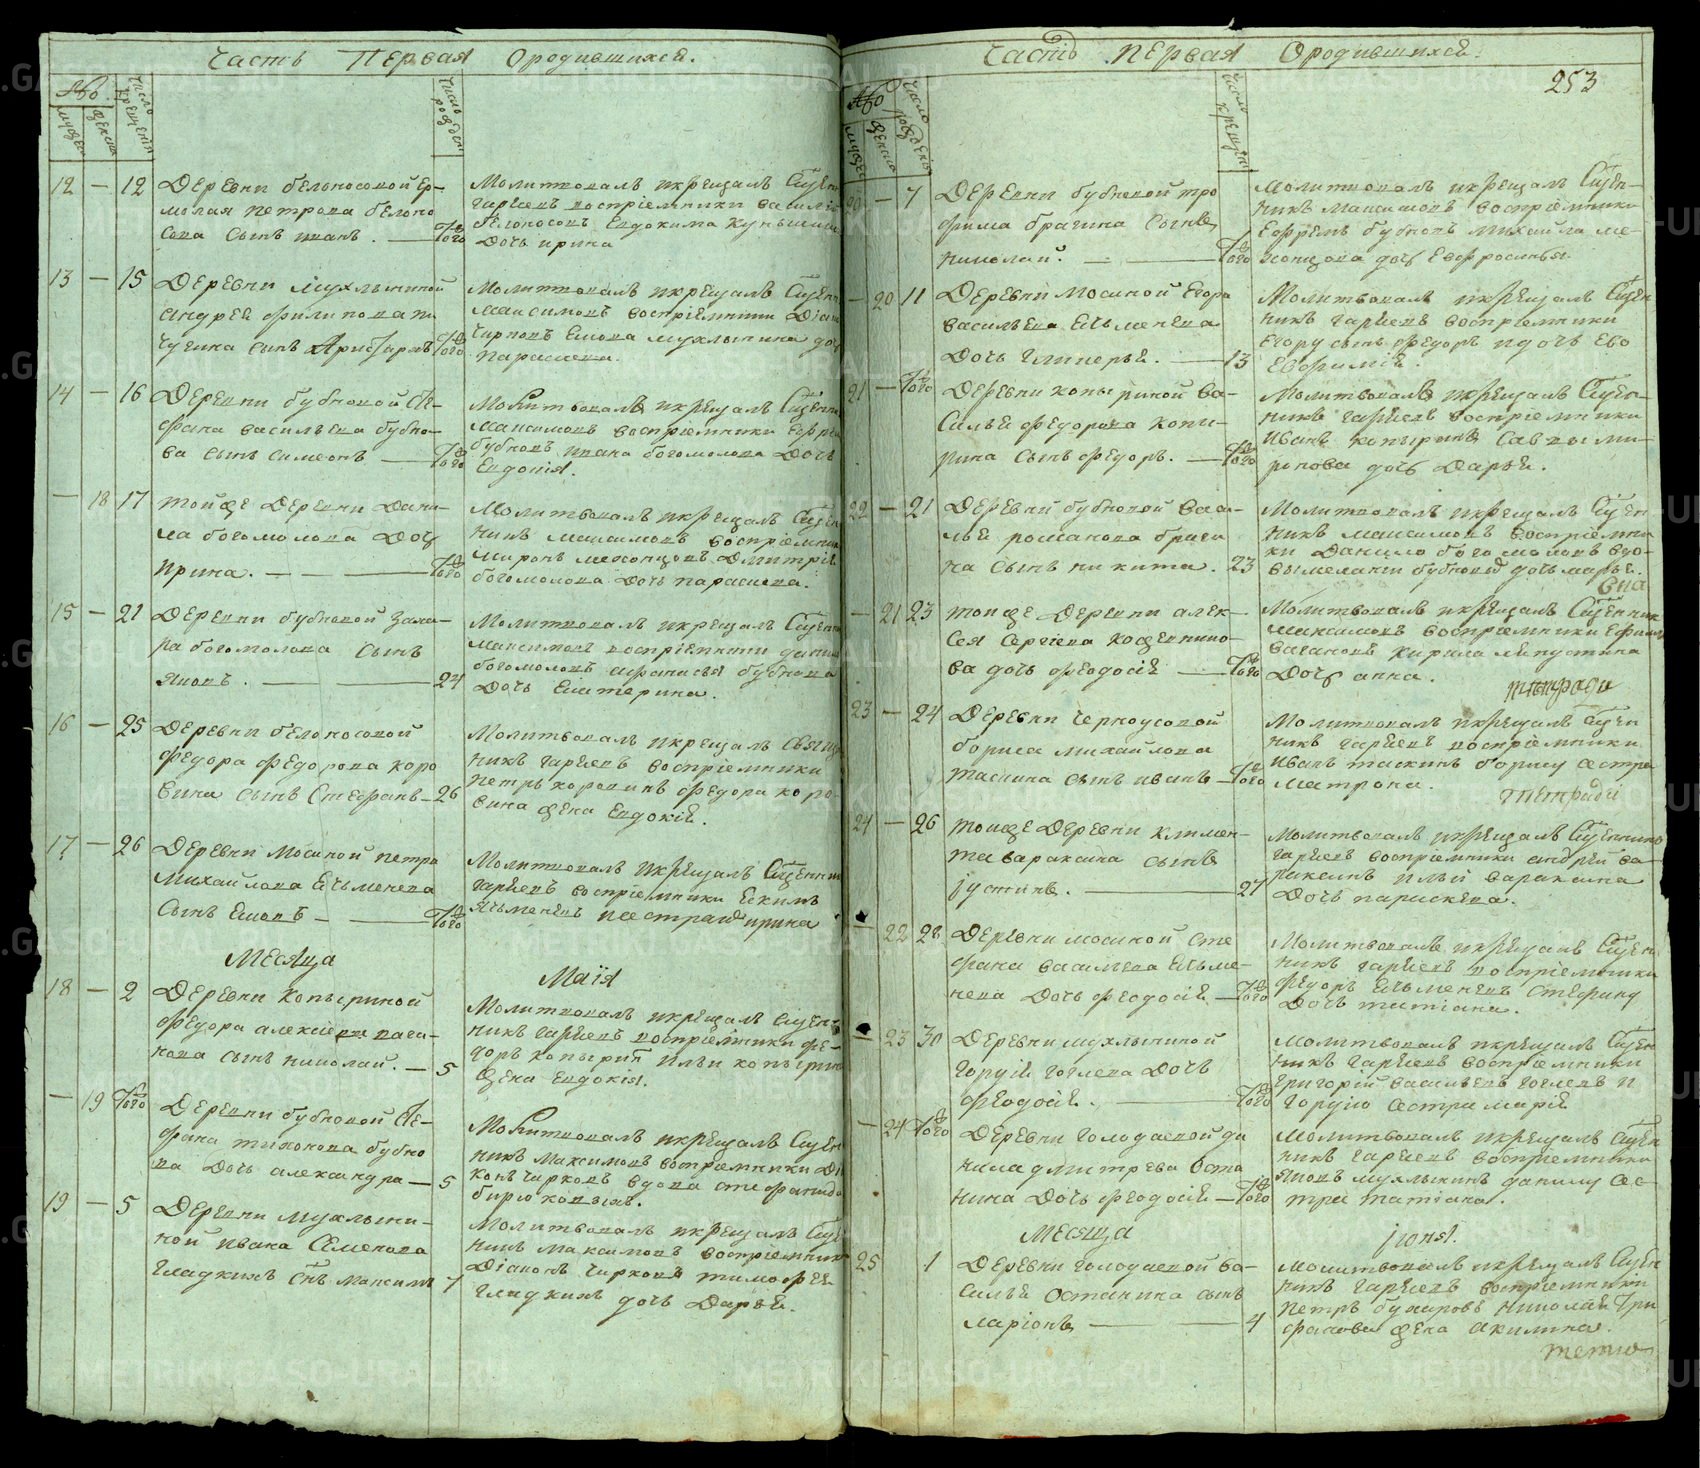 Часть Первая Ородившихся.
12 — 12 Деревни белоносовой Ер-
молая Петрова бѣлоно
сова сынъ иванъ. — Того
Молитвовалъ икрещалъ Сщен
гаряевъ воспрiемники василiй
бѣлоносовъ Евдокима
Дочь ирина
13 — 15 Деревни мухлыниной
андрея филипова
чугина сынъ Аристархъ Того
Молитвовалъ икрещалъ Сщен
максимовъ воспрiемники Дiако
чирковъ Екова мухлынина дочь
параскева.
14 — 16 Деревни бубновой Сте-
фана васильева бубно-
ва сынъ симеонъ — Того
Молитвовалъ икрещалъ Сщенни
максимовъ воспрiемники Ефре
бубновъ ивана богомолова Дочь
Евдокiя.
— 18 17 тойже Деревни Дани-
ла богомолова Дочь
ирина. — Того
Молитвовалъ икрещалъ Сщен
никъ максимовъ воспрiемники
миронъ мехонцовъ Дмитрiя
богомолова Дочь параскева.
15 — 21 Деревни бубновой Заха-
ра богомолова сынъ
яковъ. — 24
Молитвовалъ икрещалъ Сщенни
максимовъ воспрiемники данила
богомоловъ афанасья бубнова
Дочь Екатерина.
16 — 25 Деревни белоносовой
федора федорова коро
вина сынъ Стефанъ — 26
Молитвовалъ икрещалъ Свящ
никъ гаряевъ воспрiемники
петръ коровинъ федора коро-
вина жена Евдокiя.
17 — 26 Деревни мосиной петра
михайлова Ячьменева
Сынъ Ековъ — Того
Молитвовалъ икрещалъ Сщенни
гаряевъ воспрiемники Екимъ
Ячьменевъ исестра ирина
Месяца Маiя
18 — 2 Деревни копыриной
федора алексiева вага-
нова сынъ николай. — 5
Молитвовалъ икрещалъ Сщен-
никъ гаряевъ воспрiемники фе-
доръ копыринъ ильи копырин
жена Евдокiя.
— 19 Того Деревни бубновой Сте-
фана тихонова бубно
ва Дочь александра — 5
Молитвовалъ икрещалъ Сщен
никъ максимовъ воспрiемники Дiя
конъ чирковъ вдова стефанида
бирюковыхъ.
19 — 5 Деревни мухлыни-
ной ивана Семенова
гладкихъ Снъ максимъ 7
Молитвовалъ икрещалъ Сще
никъ максимовъ воспрiемники
Дiаконъ чирковъ тимофея
гладкихъ дочь Дарья.
Часть Первая Ородившихся.
253
20 — 7 Деревни бубновой тро
фима брагина Сынъ
николай. — Того
Молитвовалъ икрещалъ Сщен-
никъ максимовъ воспрiемники
Ефремъ бубновъ михайла ме-
хонцова дочь Ефросинья.
— 20 11 Деревни мосиной Егора
васильева Ячьменева
Дочь гликерья. — 13
Молитвовалъ икрещалъ Сщен
никъ гаряевъ воспрiемники
Егору сынъ федоръ идочь Ево
Ефимiя.
21 — Того Деревни копыриной ва-
силья федорова копы-
рина сынъ федоръ. — Того
Молитвовалъ икрещалъ Сщен-
никъ гаряевъ воспрiемники
иванъ копыринъ Саввы ми-
ронова дочь Дарья.
22 — 21 Деревни бубновой васи-
лья романова браги
на сынъ никита. 23
Молитвовалъ икрещалъ Сщен
никъ максимовъ воспрiемни
ки Данило богомоловъ вдо-
вы меланьи бубновы дочь марья.
— 21 23 тойже Деревни алек-
сея Сергiева кожевнико-
ва дочь федосiя — Того
Молитвовалъ икрещалъ Сщенникъ
максимовъ воспрiемники Ефимъ
вагановъ кирила
Дочь анна.
23 — 24 Деревни черноусовой
бориса михайлова
таскина сынъ иванъ — Того
Молитвовалъ икрещалъ Сщен
никъ гаряевъ воспрiемники
иванъ таскинъ борису сестра
матрона.
24 — 26 тойже Деревни климен-
та вараксина сынъ
iустинъ. — 27
Молитвовалъ икрещалъ Сщенникъ
гаряевъ воспрiемники андрей ва-
раксинъ ильи вараксина
Дочь параскева.
— 22 28 Деревни мосиной сте
фана васильева Ячьме-
нева Дочь федосiя — Того
Молитвовалъ икрещалъ Сщен
никъ гаряевъ воспрiемники
федоръ Ячьменевъ Стефану
Дочь татiана.
— 23 30 Деревни мухлыниной
гордiя гоглева Дочь
федосiя. — Того
Молитвовалъ икрещалъ Сщен
никъ гаряевъ воспрiемники
григорiй васильевъ гоглевъ и
гордiю сестра марiя
— 24 Того Деревни голодаевой да
нила дмитрева оста
нина Дочь федосiя — Того
Молитвовалъ икрещалъ Сщен
никъ гаряевъ воспрiемники
яковъ мухлынинъ данилу се-
тра татiана.
Месяца iюня.
25 1 Деревни голодаевой ва-
силья останина сынъ
ларiонъ — 4
Молитвовалъ икрещалъ Сщен
никъ гаряевъ воспрiемники
петръ бухаровъ николая три
фанова жена акилина.